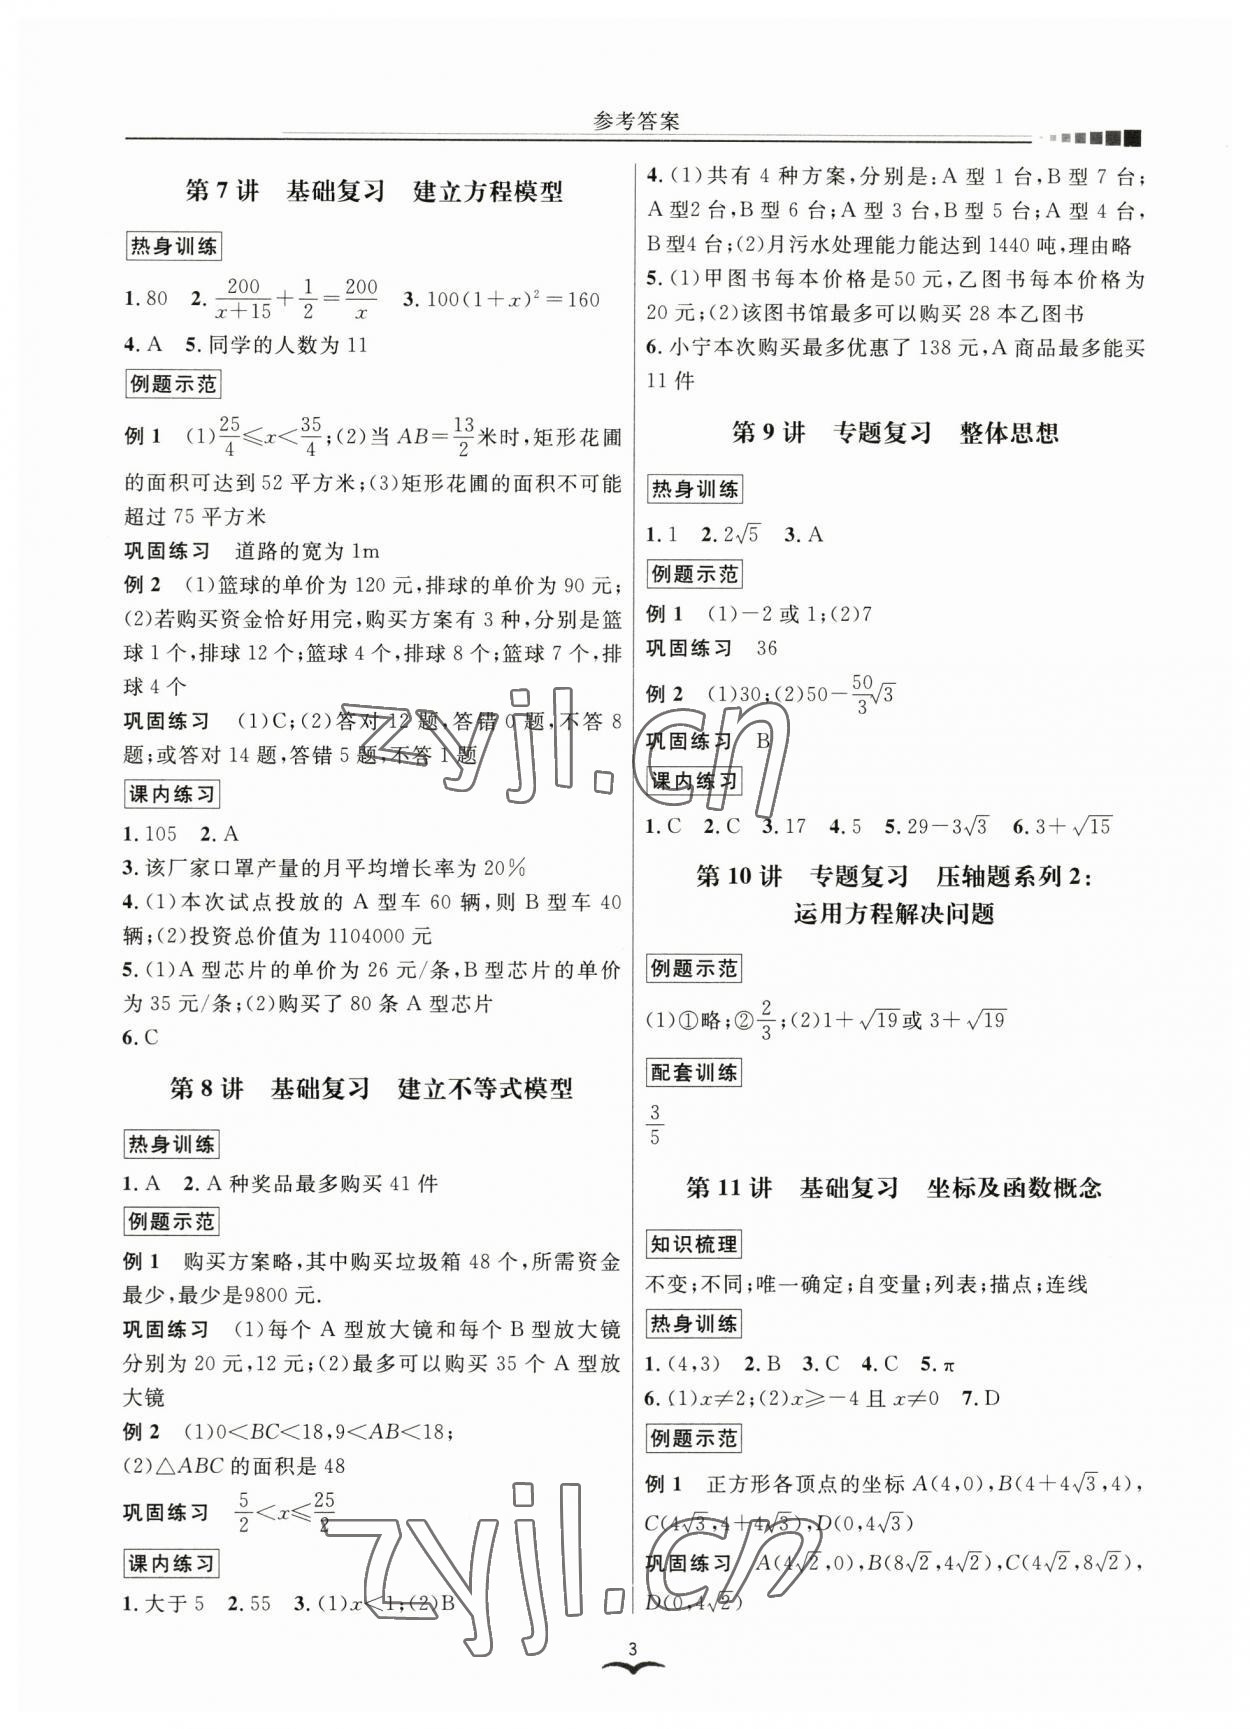 参考答案
第7讲 基础复习 建立方程模型
热身训练
1.80 2. 200/(x+15) + 1/2 = 200/x 3. 100(1+x)²=160
4. A 5. 同学的人数为11
例题示范
例1 (1) 25/4≤x<35/4;(2)当AB=13/2米时,矩形花圃
的面积可达到52平方米;(3)矩形花圃的面积不可能
超过75平方米
巩固练习 道路的宽为1m
例2 (1)篮球的单价为120元,排球的单价为90元;
(2)若购买资金恰好用完,购买方案有3种,分别是篮
球1个,排球12个;篮球4个,排球8个;篮球7个,排
球4个
巩固练习 (1)C;(2)答对12题,答错0题,不答8
题;或答对14题,答错5题,不答1题
课内练习
1.105 2. A
3.该厂家口罩产量的月平均增长率为20%
4.(1)本次试点投放的A型车60辆,则B型车40
辆;(2)投资总价值为1104000元
5.(1)A型芯片的单价为26元/条,B型芯片的单价
为35元/条;(2)购买了80条A型芯片
6. C
第8讲 基础复习 建立不等式模型
热身训练
1. A 2. A种奖品最多购买41件
例题示范
例1 购买方案略,其中购买垃圾箱48个,所需资金
最少,最少是9800元.
巩固练习 (1)每个A型放大镜和每个B型放大镜
分别为20元,12元;(2)最多可以购买35个A型放
大镜
例2 (1)0<BC<18,9<AB<18;
(2)△ABC的面积是48
巩固练习 5/2<x≤25/2
课内练习
1.大于5 2.55 3.(1)x<1;(2)B
4.(1)共有4种方案,分别是:A型1台,B型7台;
A型2台,B型6台;A型3台,B型5台;A型4台,
B型4台;(2)月污水处理能力能达到1440吨,理由略
5.(1)甲图书每本价格是50元,乙图书每本价格为
20元;(2)该图书馆最多可以购买28本乙图书
6.小宁本次购买最多优惠了138元,A商品最多能买
11件
第9讲 专题复习 整体思想
热身训练
1.1 2. 2√5 3. A
例题示范
例1 (1)-2或1;(2)7
巩固练习 36
例2 (1)30;(2)50-50/3√3
巩固练习 B
课内练习
1. C 2. C 3.17 4.5 5. 29-3√3 6. 3+√15
第10讲 专题复习 压轴题系列2:
运用方程解决问题
例题示范
(1)①略;②2/3;(2)1+√19或3+√19
配套训练
3/5
第11讲 基础复习 坐标及函数概念
知识梳理
不变;不同;唯一确定;自变量;列表;描点;连线
热身训练
1.(4,3) 2. B 3. C 4. C 5. π
6.(1)x≠2;(2)x≥-4且x≠0 7. D
例题示范
例1 正方形各顶点的坐标A(4,0),B(4+4√3,4),
C(4√3,4+4√3),D(0,4√3)
巩固练习 A(4√2,0),B(8√2,4√2),C(4√2,8√2),
D(0,4√2)
zyjl.cn
zyjl.cn
3